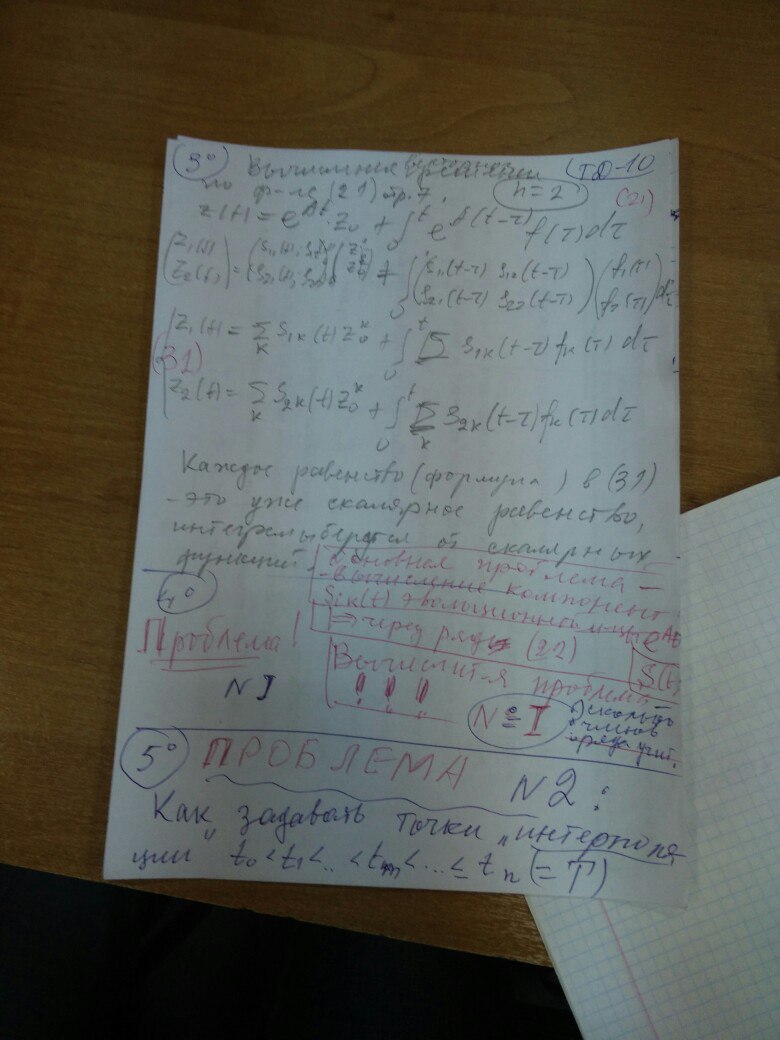 3° Вычисления ТД-10
по ф-ле (21) стр. 7. n=2 (21)
z(t) = e^{At} z_0 + ∫_0^t e^{A(t-τ)} f(τ)dτ
(z_1(t) z_2(t)) = (s_11(t) s_12(t) s_21(t) s_22(t)) (z_0^1 z_0^2) + ∫_0^t (s_11(t-τ) s_12(t-τ) s_21(t-τ) s_22(t-τ)) (f_1(τ) f_2(τ)) dτ
z_1(t) = Σ_k s_1k(t) z_0^k + ∫_0^t Σ s_1k(t-τ) f_k(τ) dτ
(31)
z_2(t) = Σ_k s_2k(t) z_0^k + ∫_0^t Σ_k s_2k(t-τ) f_k(τ) dτ
Каждое равенство (формула) в (31)
- это уже скалярное равенство,
интегралы берутся от скалярных
функций.
Основная проблема -
- вычисление компонент
4°
S_ik(t) эволюционной м-цы e^{At}
⇒ через ряды (22)
Проблема!
Вычислит-я проблема
S(t)
!!!
N I
N° I
сколько
членов
ряда учит.
5° ПРОБЛЕМА N2:
Как задавать точки "интерполя
ции" t_0 < t_1 < .. < t_m < ... ≤ t_n (= T)